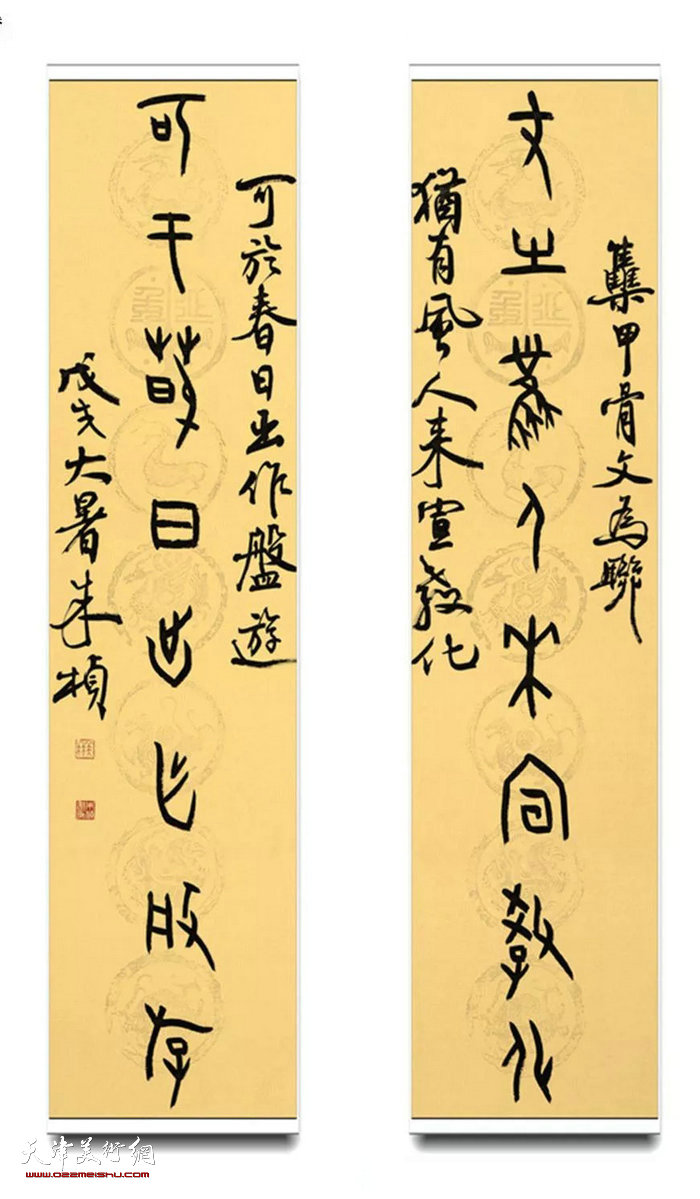 集甲骨文為聯
猶㞢風人來宣教化
猶有風人来宣教化
可於春日出作盤遊
可于春日出乍般斿
戊戌大暑朱楨
天津美術網
www.022meishu.com